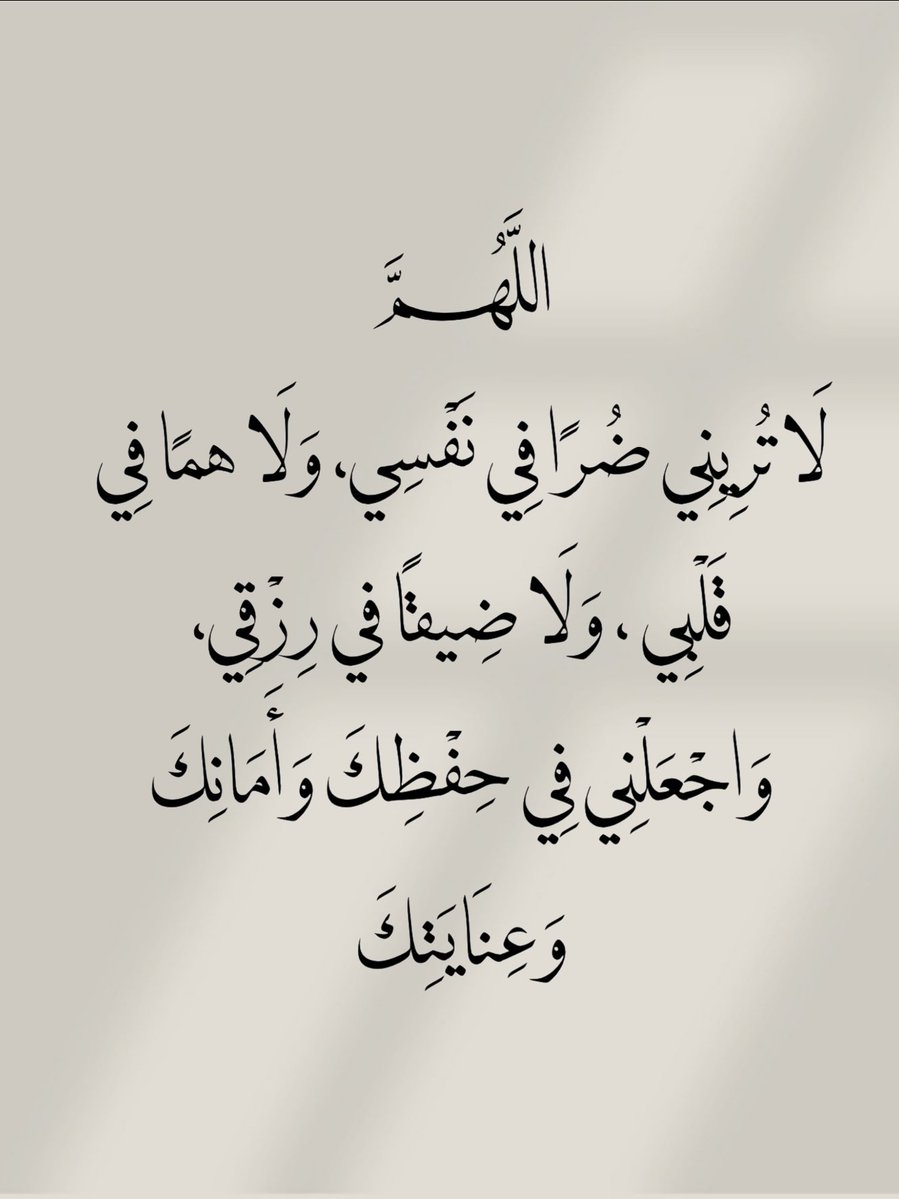 اللَّهُمَّ
لَا تُرِينِي ضُرًا فِي نَفْسِي، وَلَا همًا فِي
قَلْبِي ، وَلَا ضِيقًا في رِزْقِي،
وَاجْعَلْنِي فِي حِفْظِكَ وَأَمَانِكَ
وَعِنَايَتِكَ